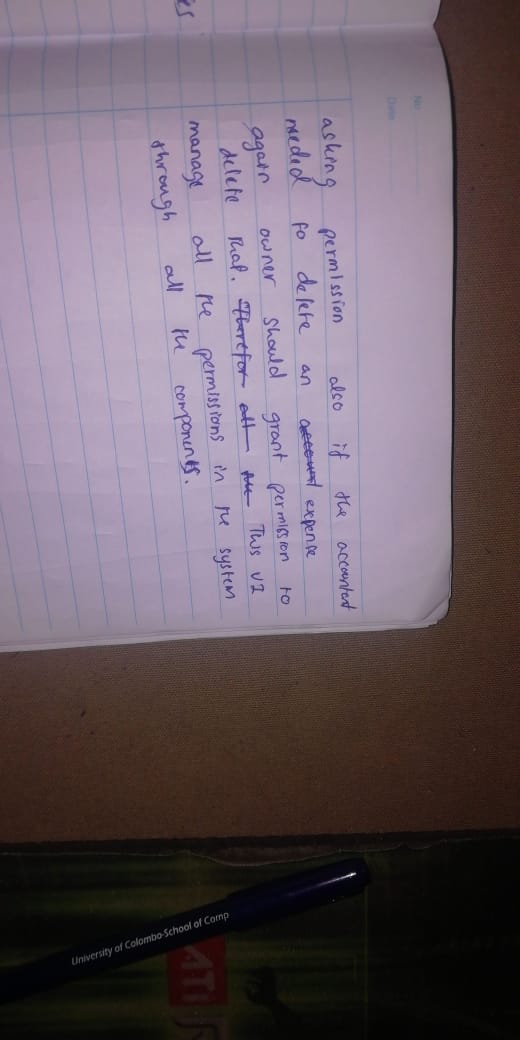 No
Date
asking permission also if the accountant
needed to delete an account expense
again owner should grant permission to
delete that. Therefor all
This UI
manage all the permissions in the system
through all the components.
es
University of Colombo School of Comp
ATI